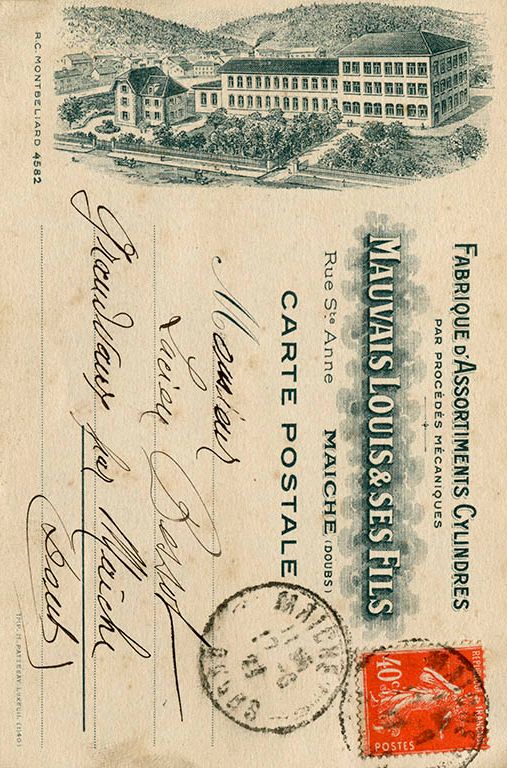 FABRIQUE D'ASSORTIMENTS CYLINDRES
PAR PROCÉDÉS MÉCANIQUES
MAUVAIS LOUIS & SES FILS
Rue Ste Anne MAICHE (DOUBS)
CARTE POSTALE
R.C. MONTBELIARD 4582
Monsieur
Lucien
par Maiche
(Doubs)
MAICHE
DOUBS
40c
POSTES